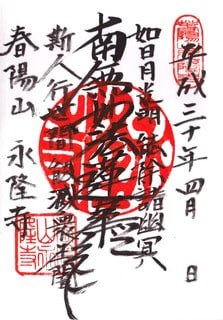 平成三十年四月 日
如日月光明 能除諸幽冥
南無妙法蓮華経
斯人行世間 能滅衆生闇
春陽山 永隆寺